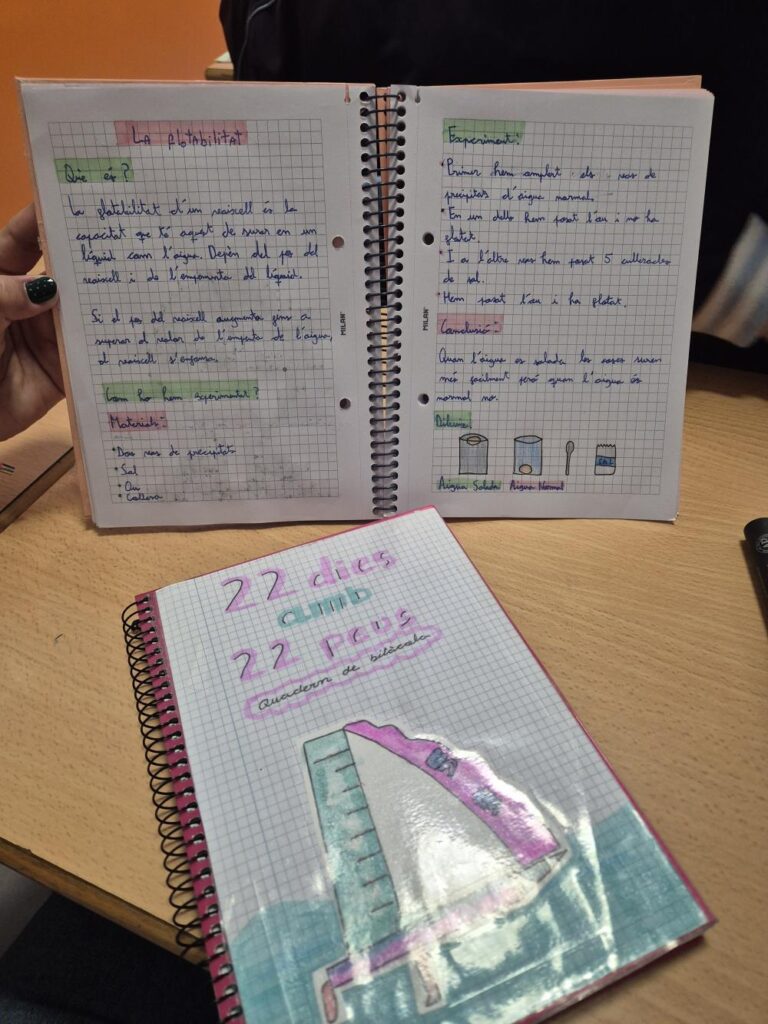 La flotabilitat
Què és?
La flotabilitat d'un vaixell és la
capacitat que té aquest de surar en un
líquid com l'aigua. Depèn del pes del
vaixell i de l'empenta del líquid.
Si el pes del vaixell augmenta fins a
superar el valor de l'empenta de l'aigua,
el vaixell s'enfonsa.
Com ho hem experimentat?
Materials:
* Dos vas de precipitat
* Sal
* Ou
* Cullera
MILAN
Experiment:
* Primer hem amplert els vas de
precipitas d'aigua normal.
* En un dells hem posat l'ou i no ha
flotat.
* I a l'altre vas hem posat 5 cullerades
de sal.
* Hem posat l'ou i ha flotat.
Conclusió:
Quan l'aigua es salada les coses suren
més facilment però quan l'aigua és
normal no.
MILAN
Dibuix:
SAL
Aigua Salada Aigua Normal
22 dies
amb
22 peus
Quadern de bitàcola